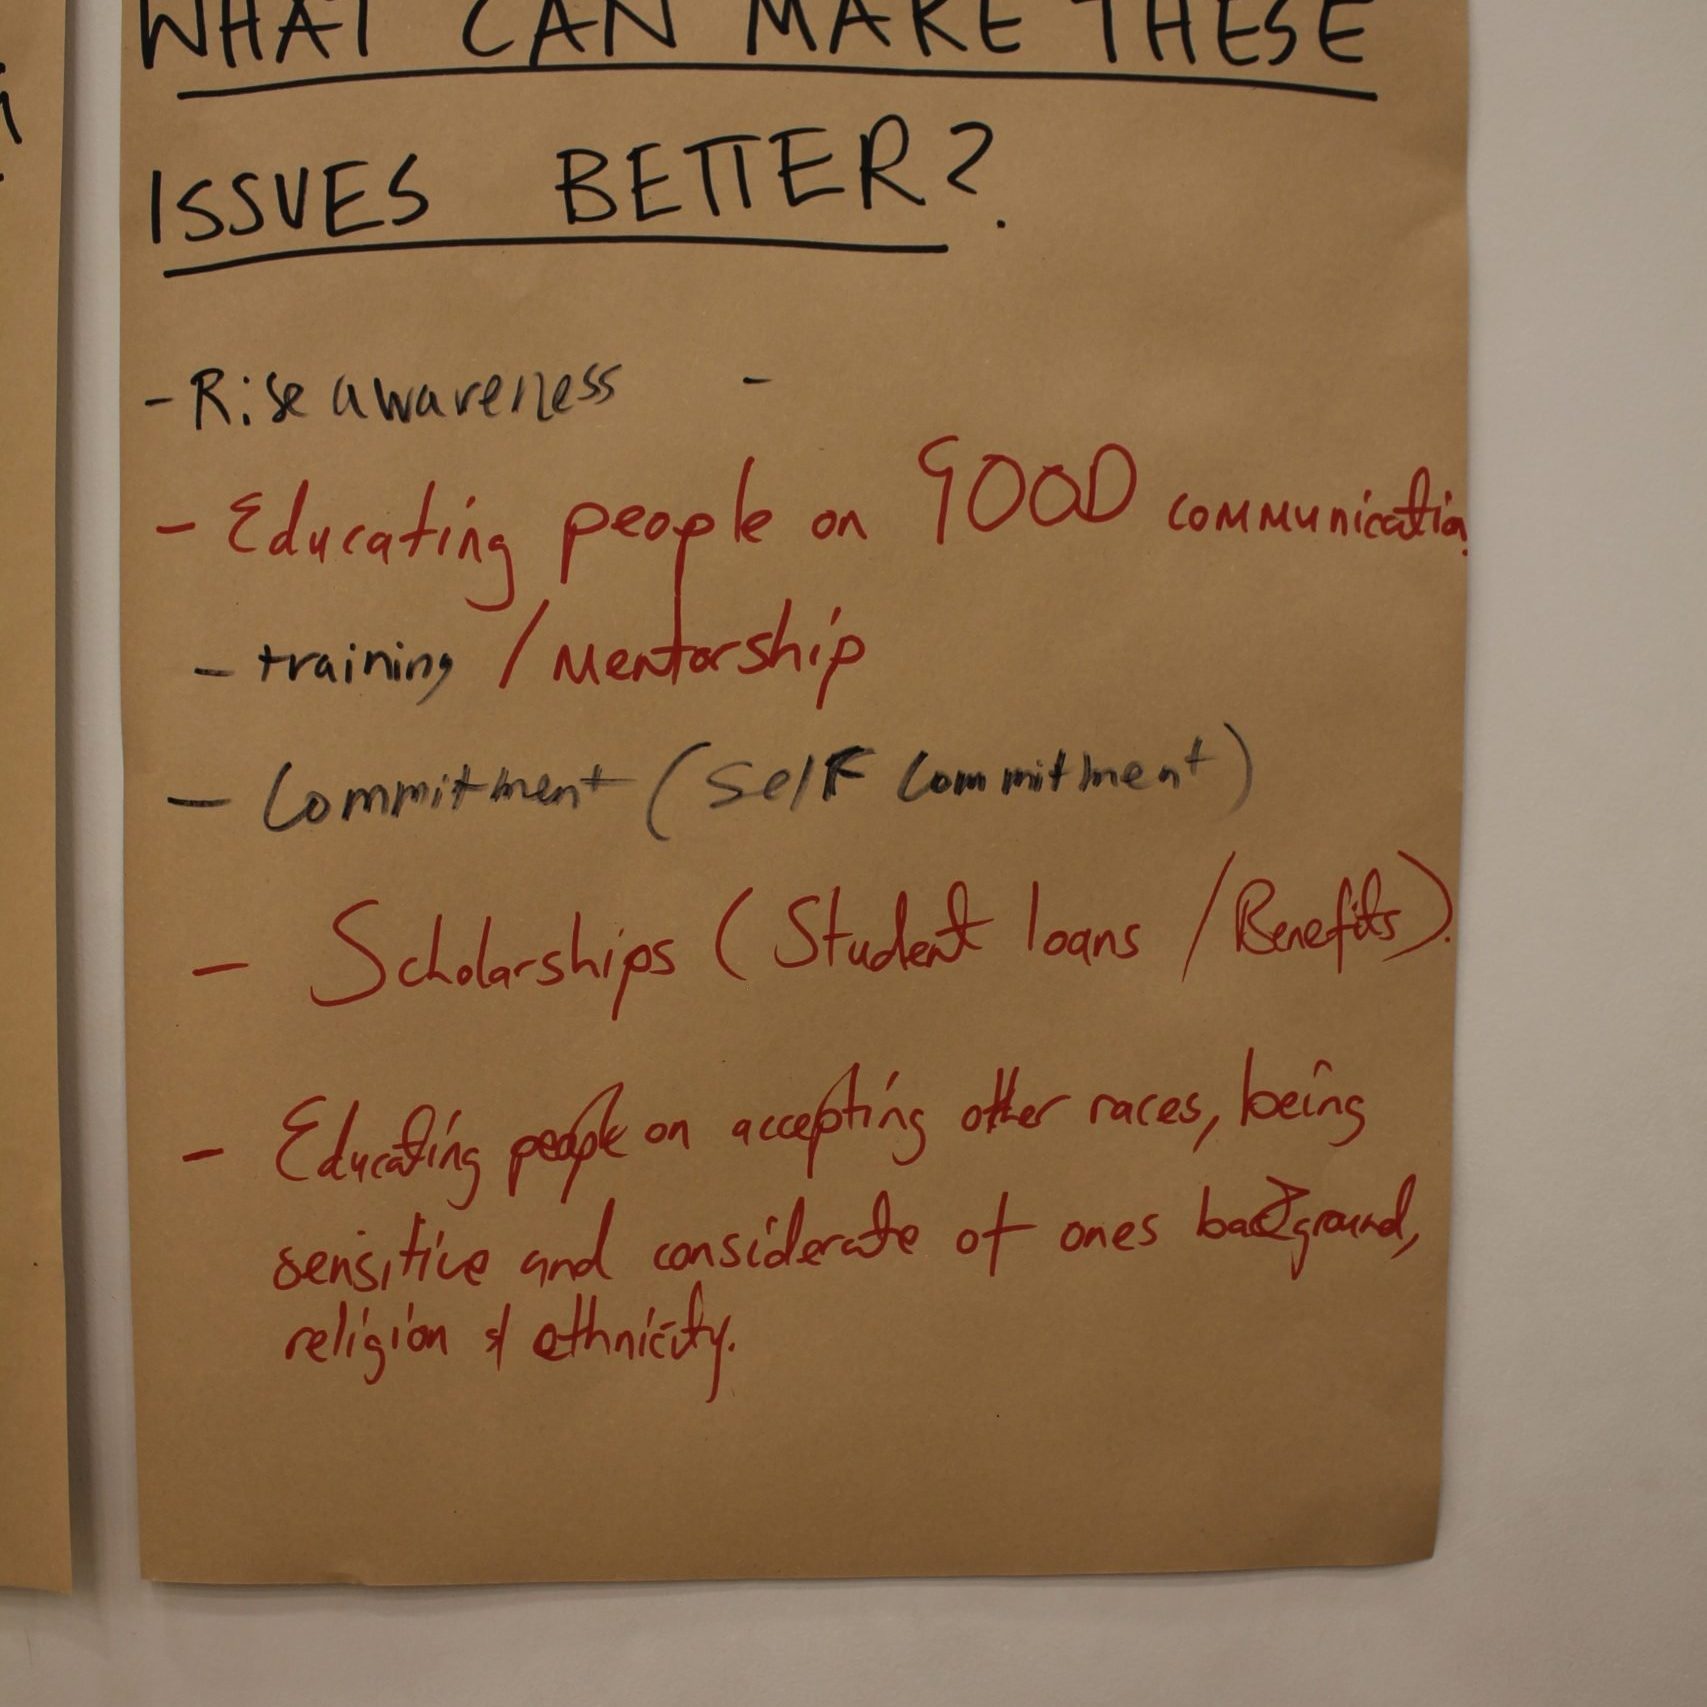 WHAT CAN MAKE THESE
ISSUES BETTER?
- Rise awareness -
- Educating people on GOOD communication.
- training / Mentorship
- Commitment (Self Commitment)
- Scholarships (Student loans / Benefits).
- Educating people on accepting other races, being
sensitive and considerate of ones background,
religion & ethnicity.